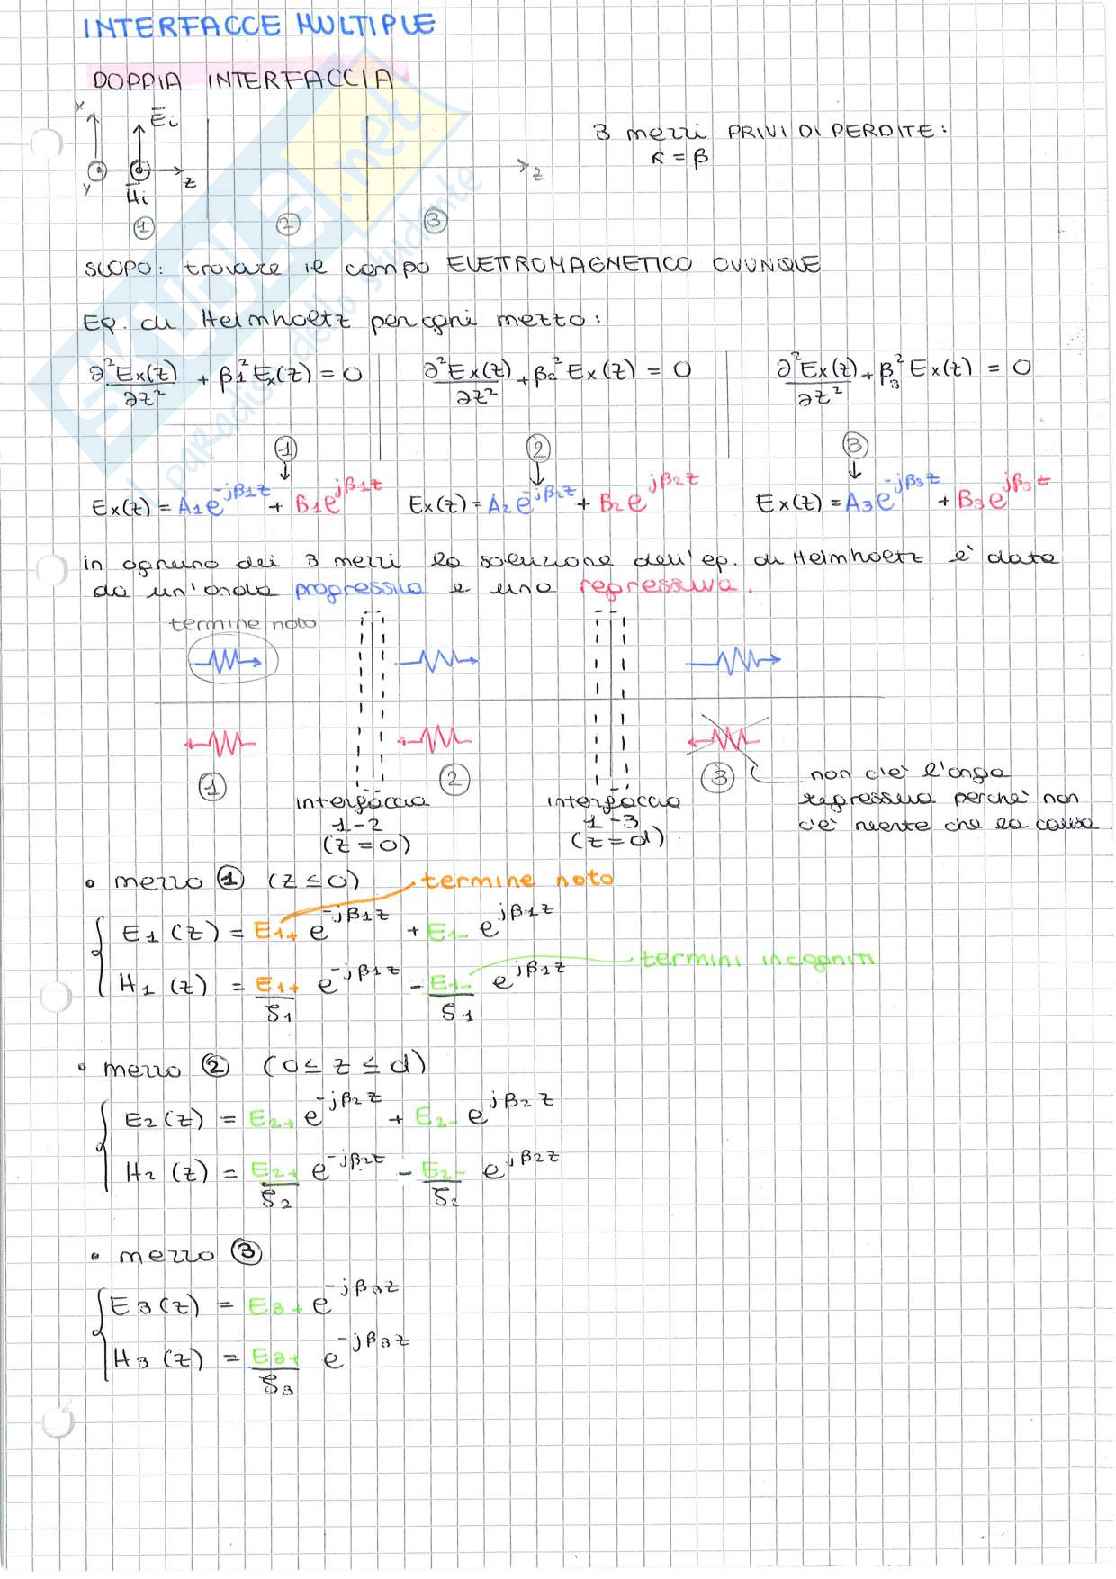 INTERFACCE MULTIPLE
DOPPIA INTERFACCIA
x Ei
3 mezzi PRIVI DI PERDITE:
K = β
y Hi z z
1 2 3
SCOPO: trovare il campo ELETTROMAGNETICO OVUNQUE
Eq. di Helmholtz per ogni mezzo:
∂²Ex(z)/∂z² + β1² Ex(z) = 0 ∂²Ex(z)/∂z² + β2² Ex(z) = 0 ∂²Ex(z)/∂z² + β3² Ex(z) = 0
1 2 3
Ex(z) = A1e^-jβ1z + B1e^jβ1z Ex(z) = A2e^-jβ2z + B2e^jβ2z Ex(z) = A3e^-jβ3z + B3e^jβ3z
in ognuno dei 3 mezzi la soluzione dell'eq. di Helmholtz è data
da un'onda progressiva e una regressiva.
termine noto
1 2 3
non c'è l'onda
regressiva perchè non
c'è niente che la causa
interfaccia interfaccia
1-2 1-3
(z=0) (z=d)
• mezzo 1 (z ≤ 0) termine noto
E1(z) = E1+ e^-jβ1z + E1- e^jβ1z
termini incogniti
H1(z) = E1+/ζ1 e^-jβ1z - E1-/ζ1 e^jβ1z
• mezzo 2 (0 ≤ z ≤ d)
E2(z) = E2+ e^-jβ2z + E2- e^jβ2z
H2(z) = E2+/ζ2 e^-jβ2z - E2-/ζ2 e^jβ2z
• mezzo 3
E3(z) = E3+ e^-jβ3z
H3(z) = E3+/ζ3 e^-jβ3z